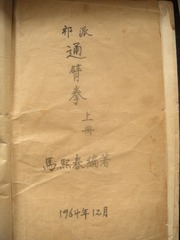 祁派
通臂拳
上册
馬熙春編著
1964年12月